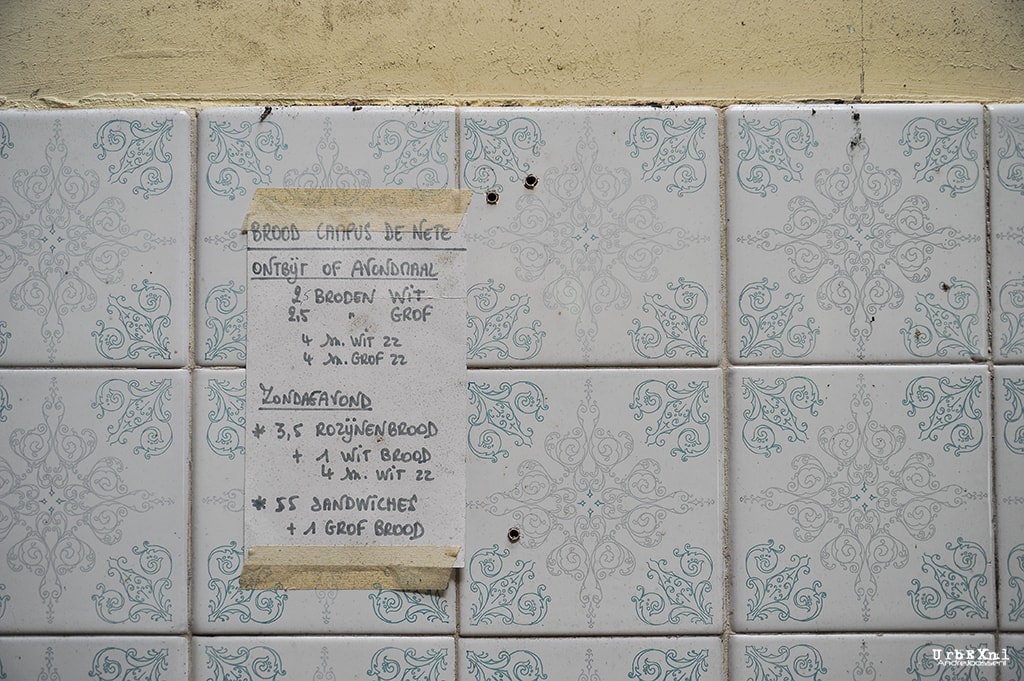 BROOD CAMPUS DE NETE
ONTBIJT OF AVONDMAAL
2 BRODEN WIT
2,5 " GROF
4 m. WIT 22
4 m. GROF 22
ZONDAGAVOND
* 3,5 ROZIJNENBROOD
+ 1 WIT BROOD
4 m. WIT 22
* 55 SANDWICHES
+ 1 GROF BROOD
UrbEXnl
AndreJoosse.nl